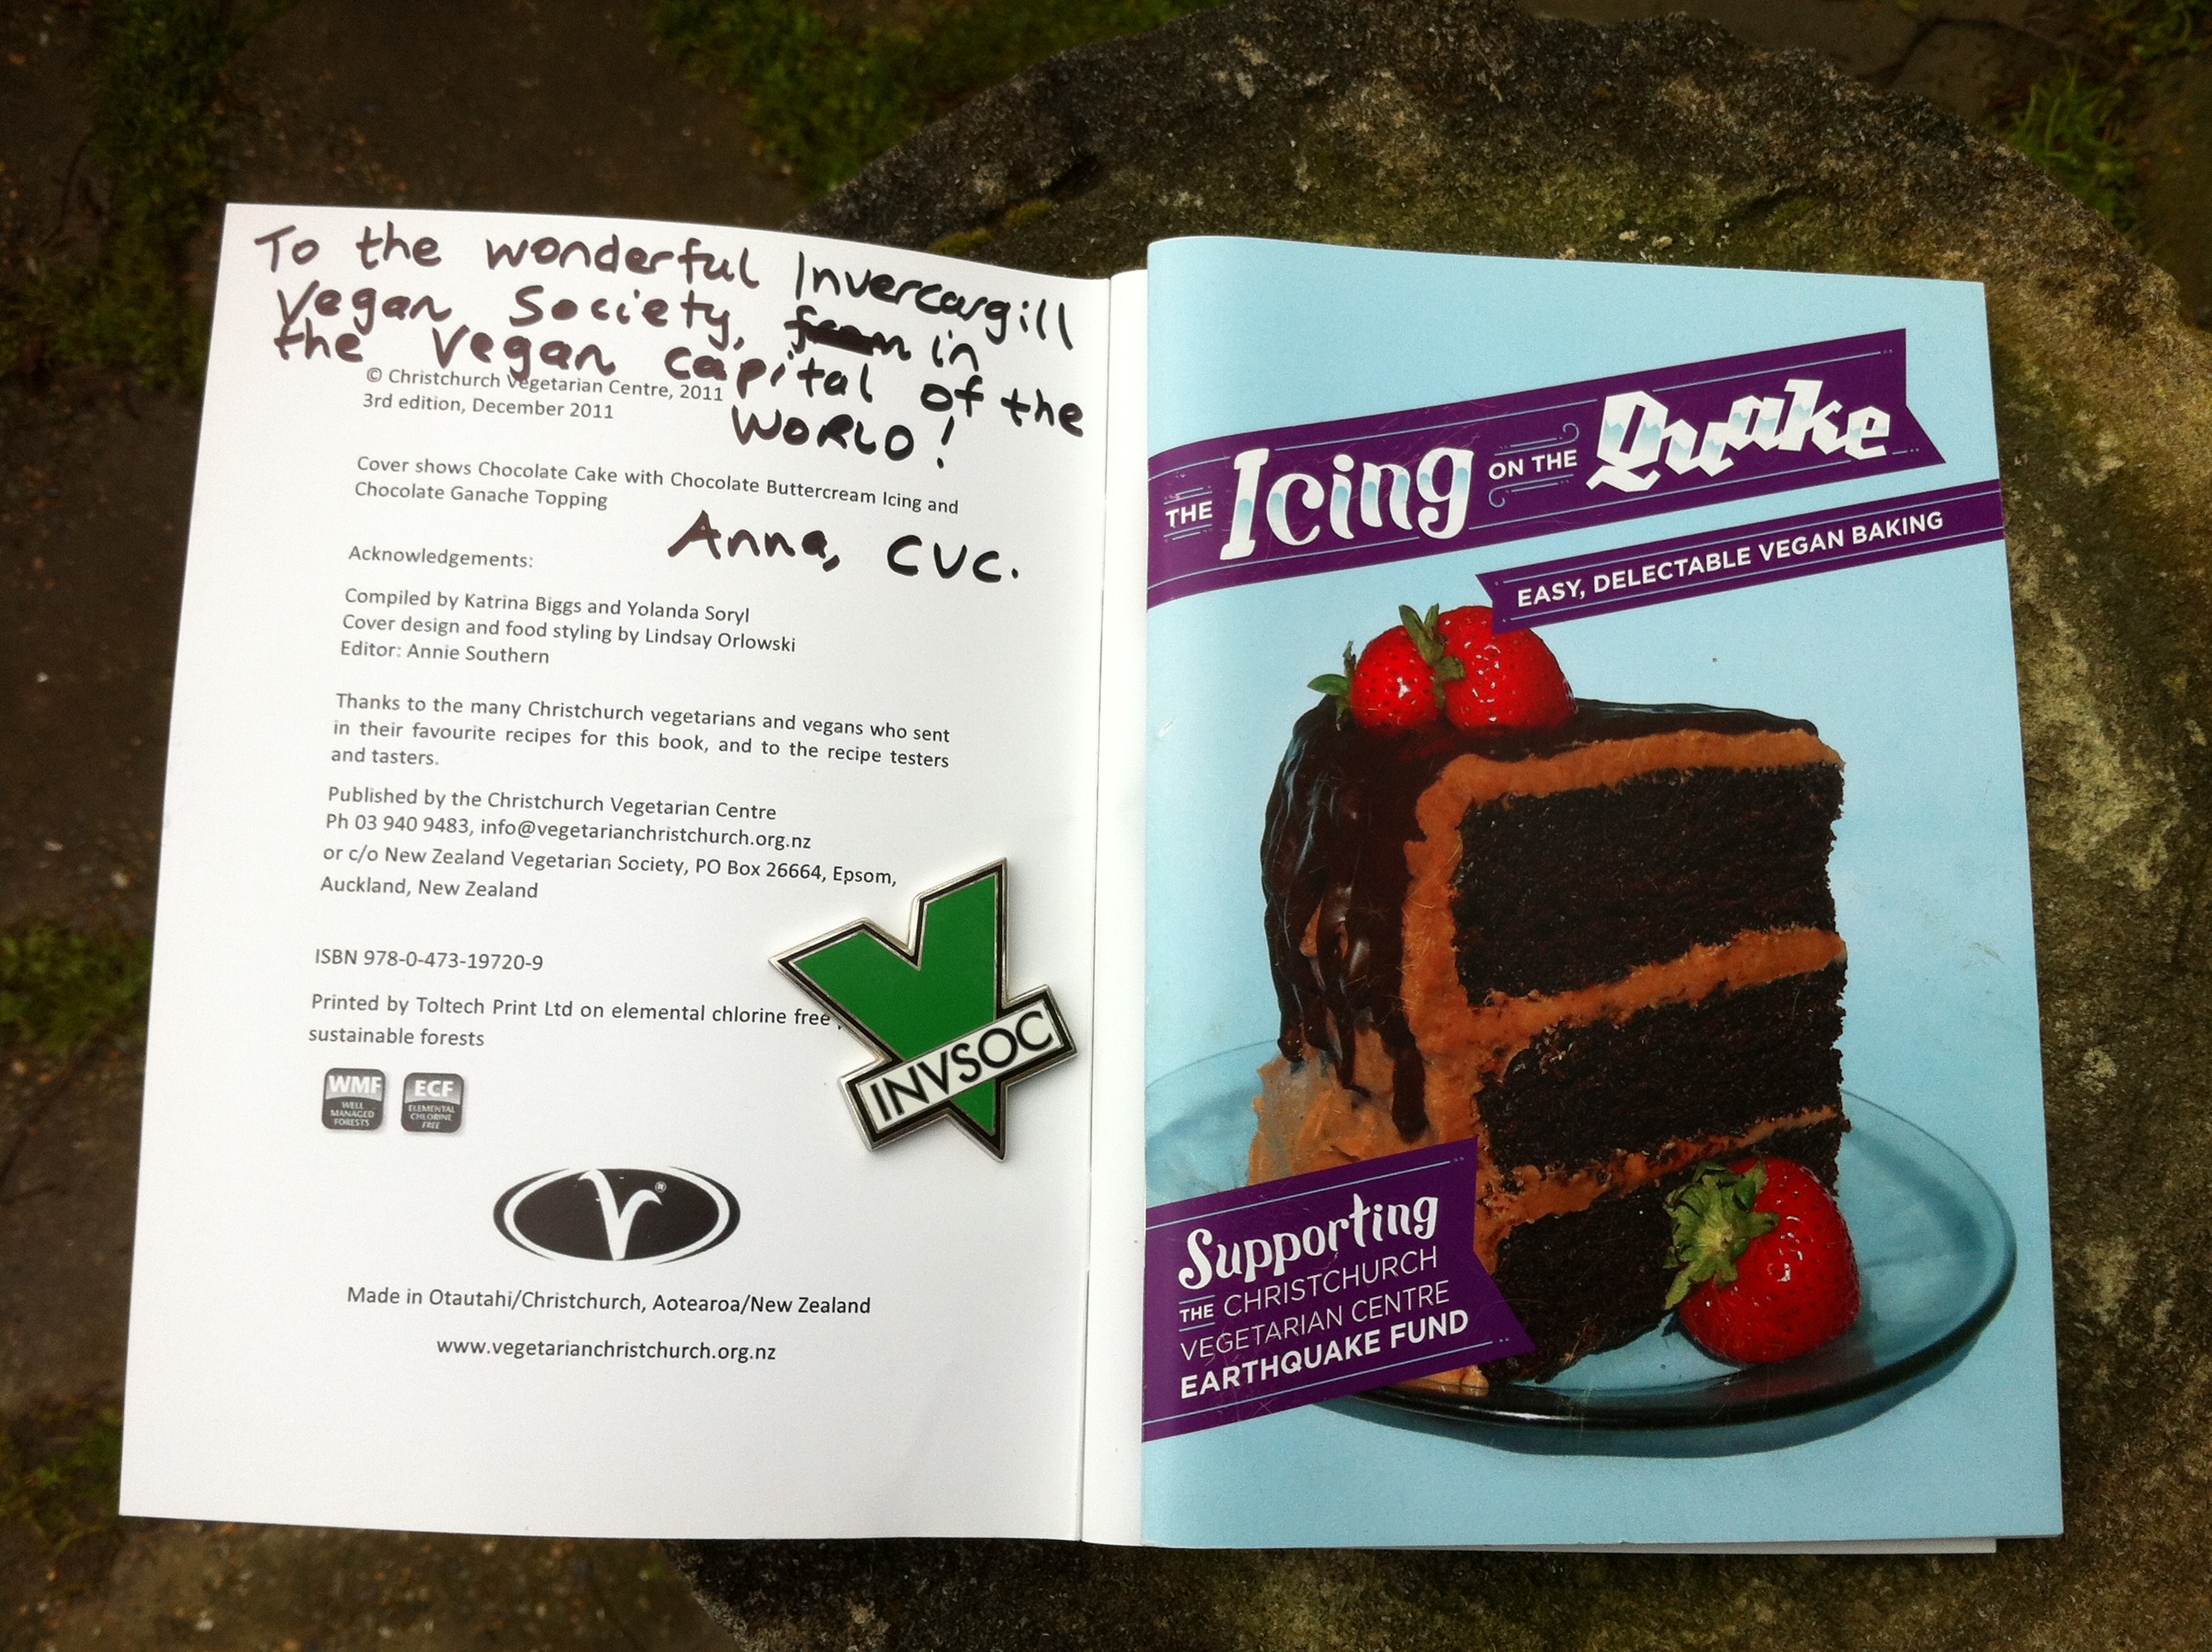 To the wonderful Invercargill
Vegan Society, in
the Vegan capital of the
WORLD!
© Christchurch Vegetarian Centre, 2011
3rd edition, December 2011
Cover shows Chocolate Cake with Chocolate Buttercream Icing and
Chocolate Ganache Topping
Anna, CVC.
Acknowledgements:
Compiled by Katrina Biggs and Yolanda Soryl
Cover design and food styling by Lindsay Orlowski
Editor: Annie Southern
Thanks to the many Christchurch vegetarians and vegans who sent
in their favourite recipes for this book, and to the recipe testers
and tasters.
Published by the Christchurch Vegetarian Centre
Ph 03 940 9483, info@vegetarianchristchurch.org.nz
or c/o New Zealand Vegetarian Society, PO Box 26664, Epsom,
Auckland, New Zealand
ISBN 978-0-473-19720-9
Printed by Toltech Print Ltd on elemental chlorine free
sustainable forests
INVSOC
WMF
WELL
MANAGED
FORESTS
ECF
ELEMENTAL
CHLORINE
FREE
V®
Made in Otautahi/Christchurch, Aotearoa/New Zealand
www.vegetarianchristchurch.org.nz
THE Icing ON THE Quake
EASY, DELECTABLE VEGAN BAKING
Supporting
THE CHRISTCHURCH
VEGETARIAN CENTRE
EARTHQUAKE FUND